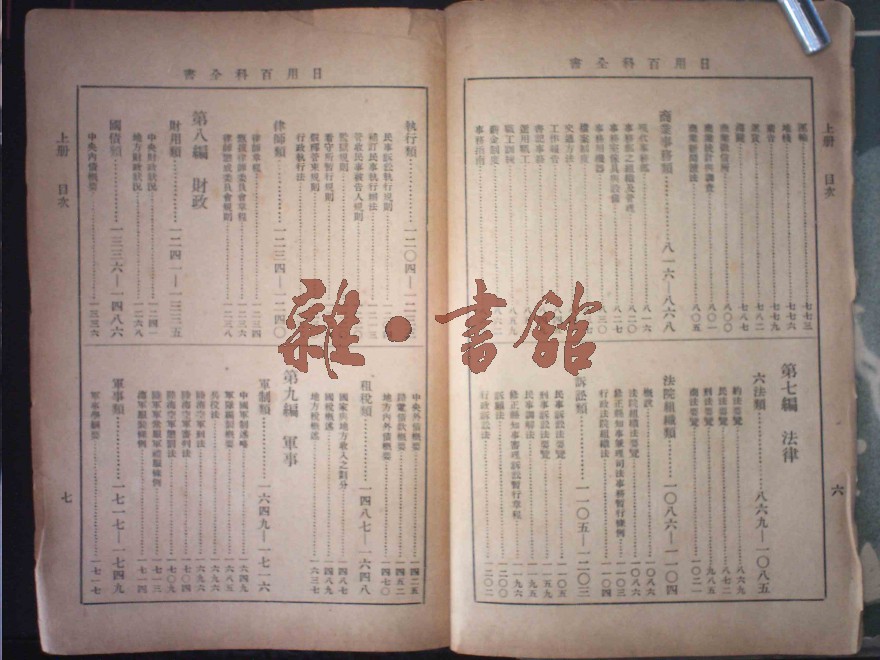 日用百科全書
上册 目次
六
運輸……七七三
堆棧……七七六
廣告……七七九
匯兌……七八二
保險……七八七
商業徵信所……八〇〇
商業統計與調查……八〇一
商業新聞讀法……八〇五
商業事務類……八一六—八六八
現代事務部……八一六
事務部之組織及管理……八二〇
事務室傢具與設備……八二七
事務用機器……八三〇
檔案制度
交通方法
工作報告
書記事務
選用職工
職工訓練……八五九
薪金制度
事務指南
第七編 法律
六法類……八六九—一〇八五
約法要覽……八六九
民法要覽……八七二
刑法要覽……九八五
商法要覽……一〇二一
法院組織類……一〇八六—一一〇四
概說……一〇八六
法院組織法要覽……一〇八六
修正縣知事兼理司法事務暫行條例……一一〇三
行政法院組織法……一一〇四
訴訟類……一一〇五—一二〇三
民事訴訟法要覽……一一〇五
刑事訴訟法要覽……一一五五
民事調解法……一一九五
修正縣知事審理訴訟暫行章程……一一九六
訴願法……一二〇〇
行政訴訟法……一二〇二
日用百科全書
上册 目次
七
執行類……一二〇四—一二三三
民事訴訟執行規則
補訂民事執行辦法……一二一三
管收民事被告人規則
監獄規則
看守所暫行規則
假釋管束規則
行政執行法
律師類……一二三四—一二四〇
律師章程……一二三四
甄拔律師委員會章程……一二三六
律師懲戒委員會規則……一二三八
第八編 財政
財用類……一二四一—一三三五
中央財政狀況……一二四一
地方財政狀況……一二六八
國債類……一三三六—一四八六
中央內債概要……一三三六
中央外債概要……一四二五
路電借款概要……一四五二
地方內外債概要……一四七〇
租稅類……一四八七—一六四八
國家與地方收入之劃分……一四八七
國稅概述……一四八九
地方稅概述……一六三七
第九編 軍事
軍制類……一六四九—一七一六
中國軍制述略……一六四九
軍隊編制概要……一六八五
兵役法……一六九六
陸海空軍刑法……一六九六
陸海空軍審判法……一七〇四
陸海空軍懲罰法……一七〇九
陸軍軍常服軍禮服條例……一七一三
海軍服裝條例……一七一四
軍事類……一七一七—一七四九
軍事學綱要……一七一七
雜·書館